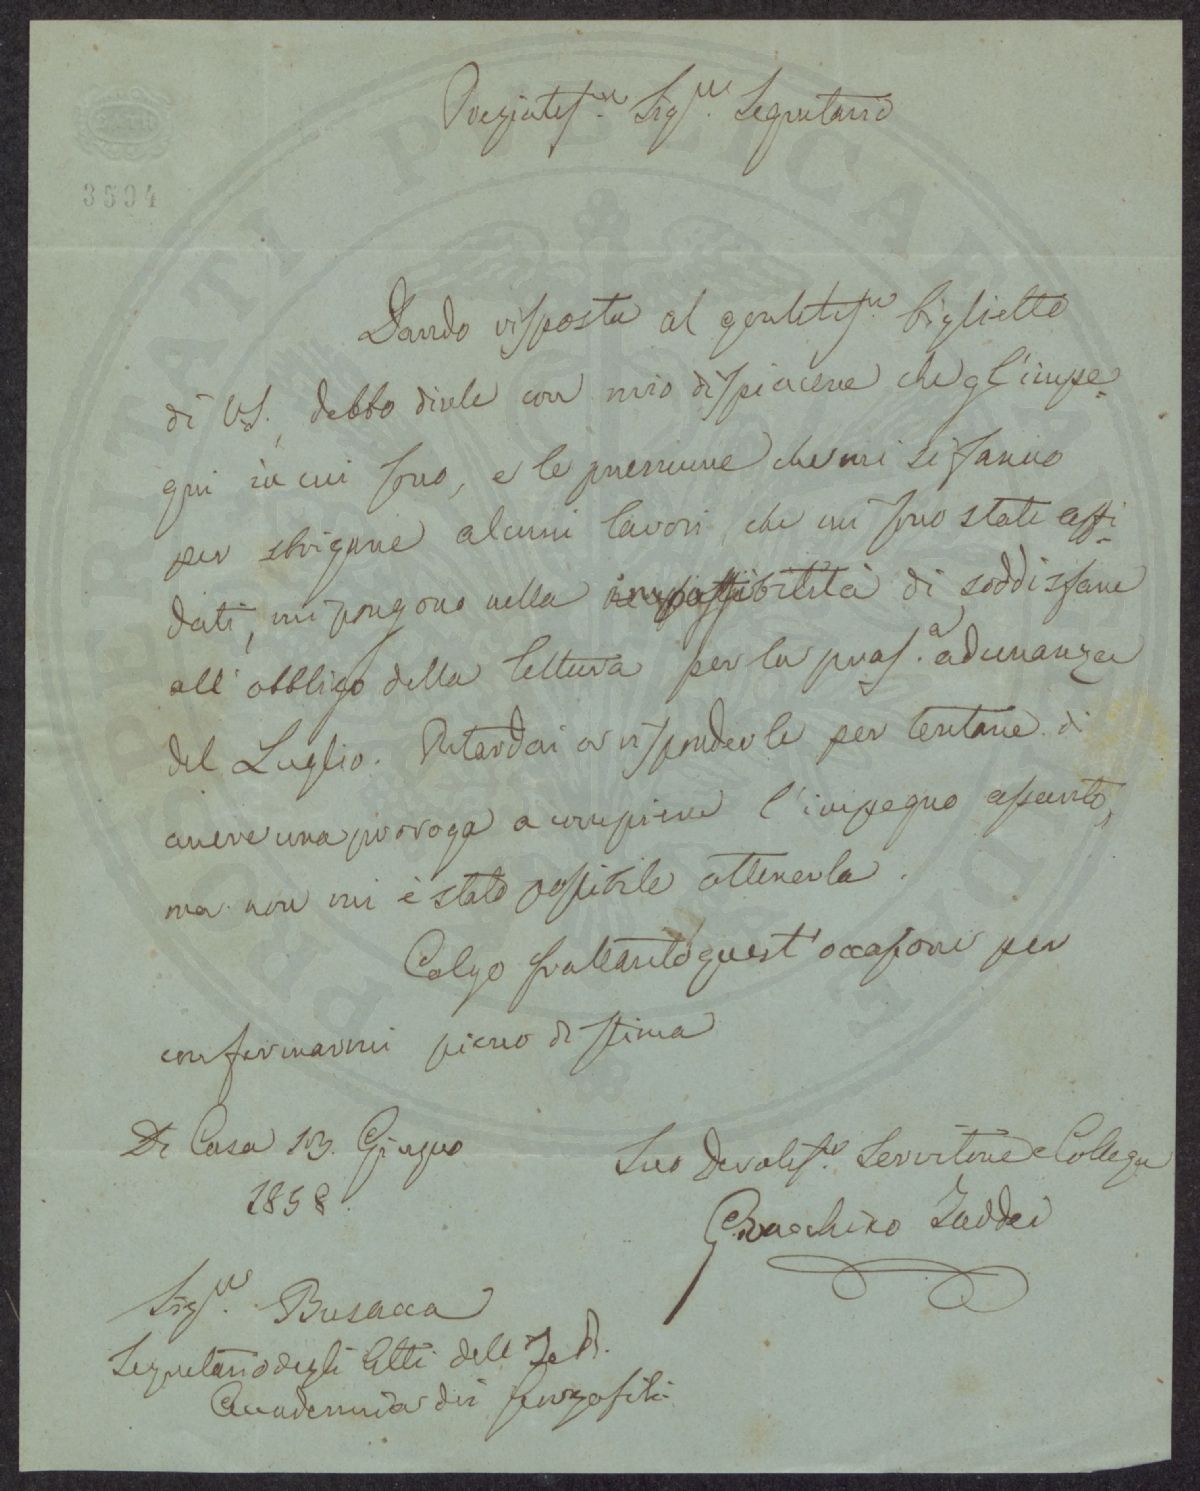 Pregiatis.mo Sig.re Segretario
3594
Dando risposta al gentilis.mo biglietto
di VS., debbo dirle con mio dispiacere che gl'impe-
gni in cui sono, e le premure che mi si fanno
per sbrigare alcuni lavori che mi sono stati affi-
dati, mi pongono nella impossibilità di soddisfare
all'obbligo della lettura per la pros.a adunanza
del Luglio. Ritardai a risponderle per tentare di
avere una proroga a compiere l'impegno assunto,
ma non mi è stato possibile ottenerla.
Colgo frattanto quest'occasione per
confermarmi pieno di stima
Di Casa 13. Giugno
1858.
Suo Devotis.mo Servitore e Collega
Gioacchino Taddei
Sig.re Busacca
Segretario degli Atti dell' I. e R.
Accademia dei Georgofili
PROSPERITATI PUBLICAE AUGENDAE